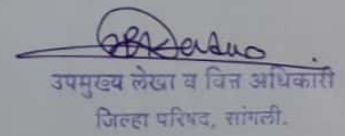 उपमुख्य लेखा व वित्त अधिकारी
जिल्हा परिषद, सांगली.